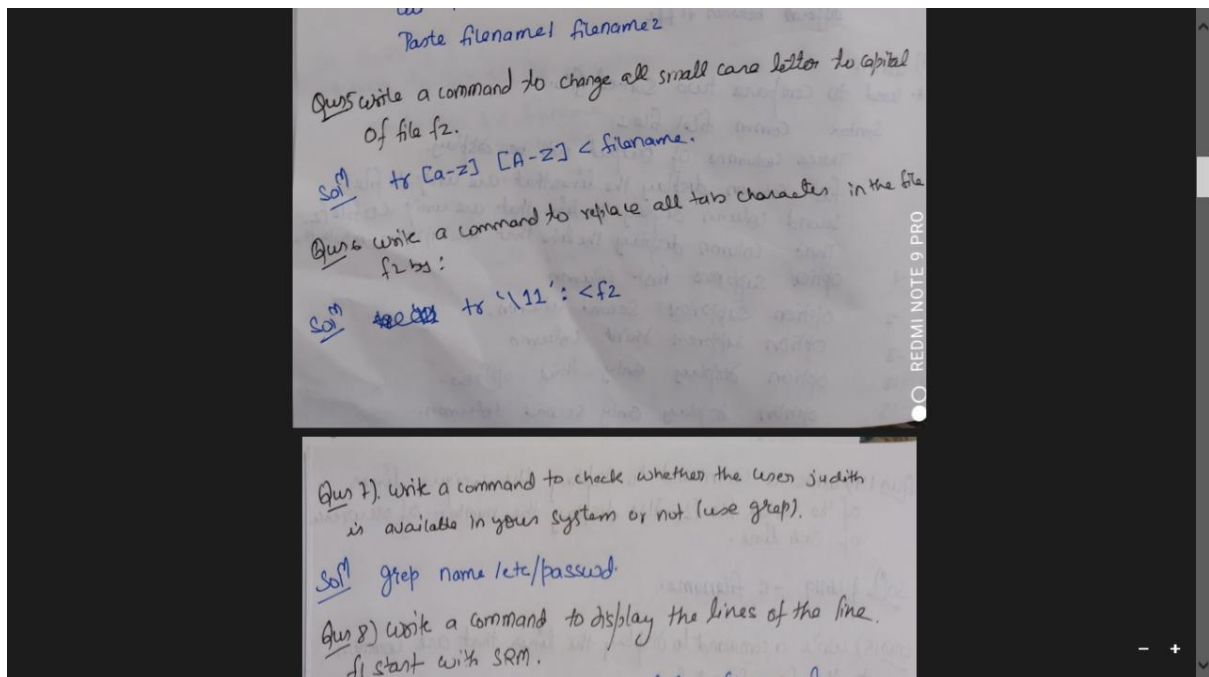 Paste filename1 filename2
Qus5 write a command to change all small case letter to capital
of file f2.
Solⁿ tr [a-z] [A-Z] < filename.
Qus6 write a command to replace all tab character in the file
f2 by :
Solⁿ tr '\11' : <f2
REDMI NOTE 9 PRO
Qus 7). write a command to check whether the user judith
is available in your system or not (use grep).
Solⁿ grep name /etc/passwd.
Qus 8) write a command to display the lines of the line.
f1 start with SRM.